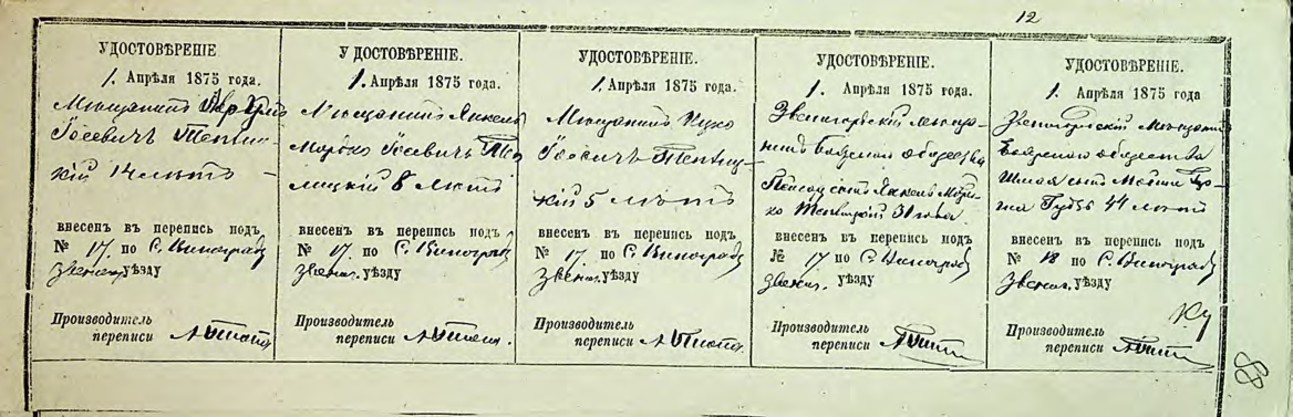 12
УДОСТОВѢРЕНІЕ
1. Апрѣля 1875 года.
Мѣщанинъ
Іосевичъ Теплиц-
кій 14 лѣтъ
внесенъ въ перепись подъ
№ 17. по С. Виноградъ
Звениг. уѣзду
Производитель
переписи
УДОСТОВѢРЕНІЕ.
1. Апрѣля 1875 года.
Мѣщанинъ Янкель
Морѣко Іосевичъ Теп
лицкій 8 лѣтъ
внесенъ въ перепись подъ
№ 17. по С. Виноградъ
Звениг. уѣзду
Производитель
переписи
УДОСТОВѢРЕНІЕ.
1. Апрѣля 1875 года.
Мѣщанинъ Ицко
Іосевичъ Теплиц-
кій 5 лѣтъ
внесенъ въ перепись подъ
№ 17. по С. Виноградъ
Звениг. уѣзду
Производитель
переписи
УДОСТОВѢРЕНІЕ.
1. Апрѣля 1875 года.
Звенигородскій мѣща-
нинъ Боярского общества
сынъ Янкель
Теплицкій 31 года
внесенъ въ перепись подъ
№ 17 по С. Виноградъ
Звениг. уѣзду
Производитель
переписи
УДОСТОВѢРЕНІЕ.
1. Апрѣля 1875 года
Звенигородскій Мѣщанинъ
Боярского общества
Шмая сынъ
44 лѣтъ
внесенъ въ перепись подъ
№ 18 по С. Виноградъ
Звениг. уѣзду
Производитель
переписи
88